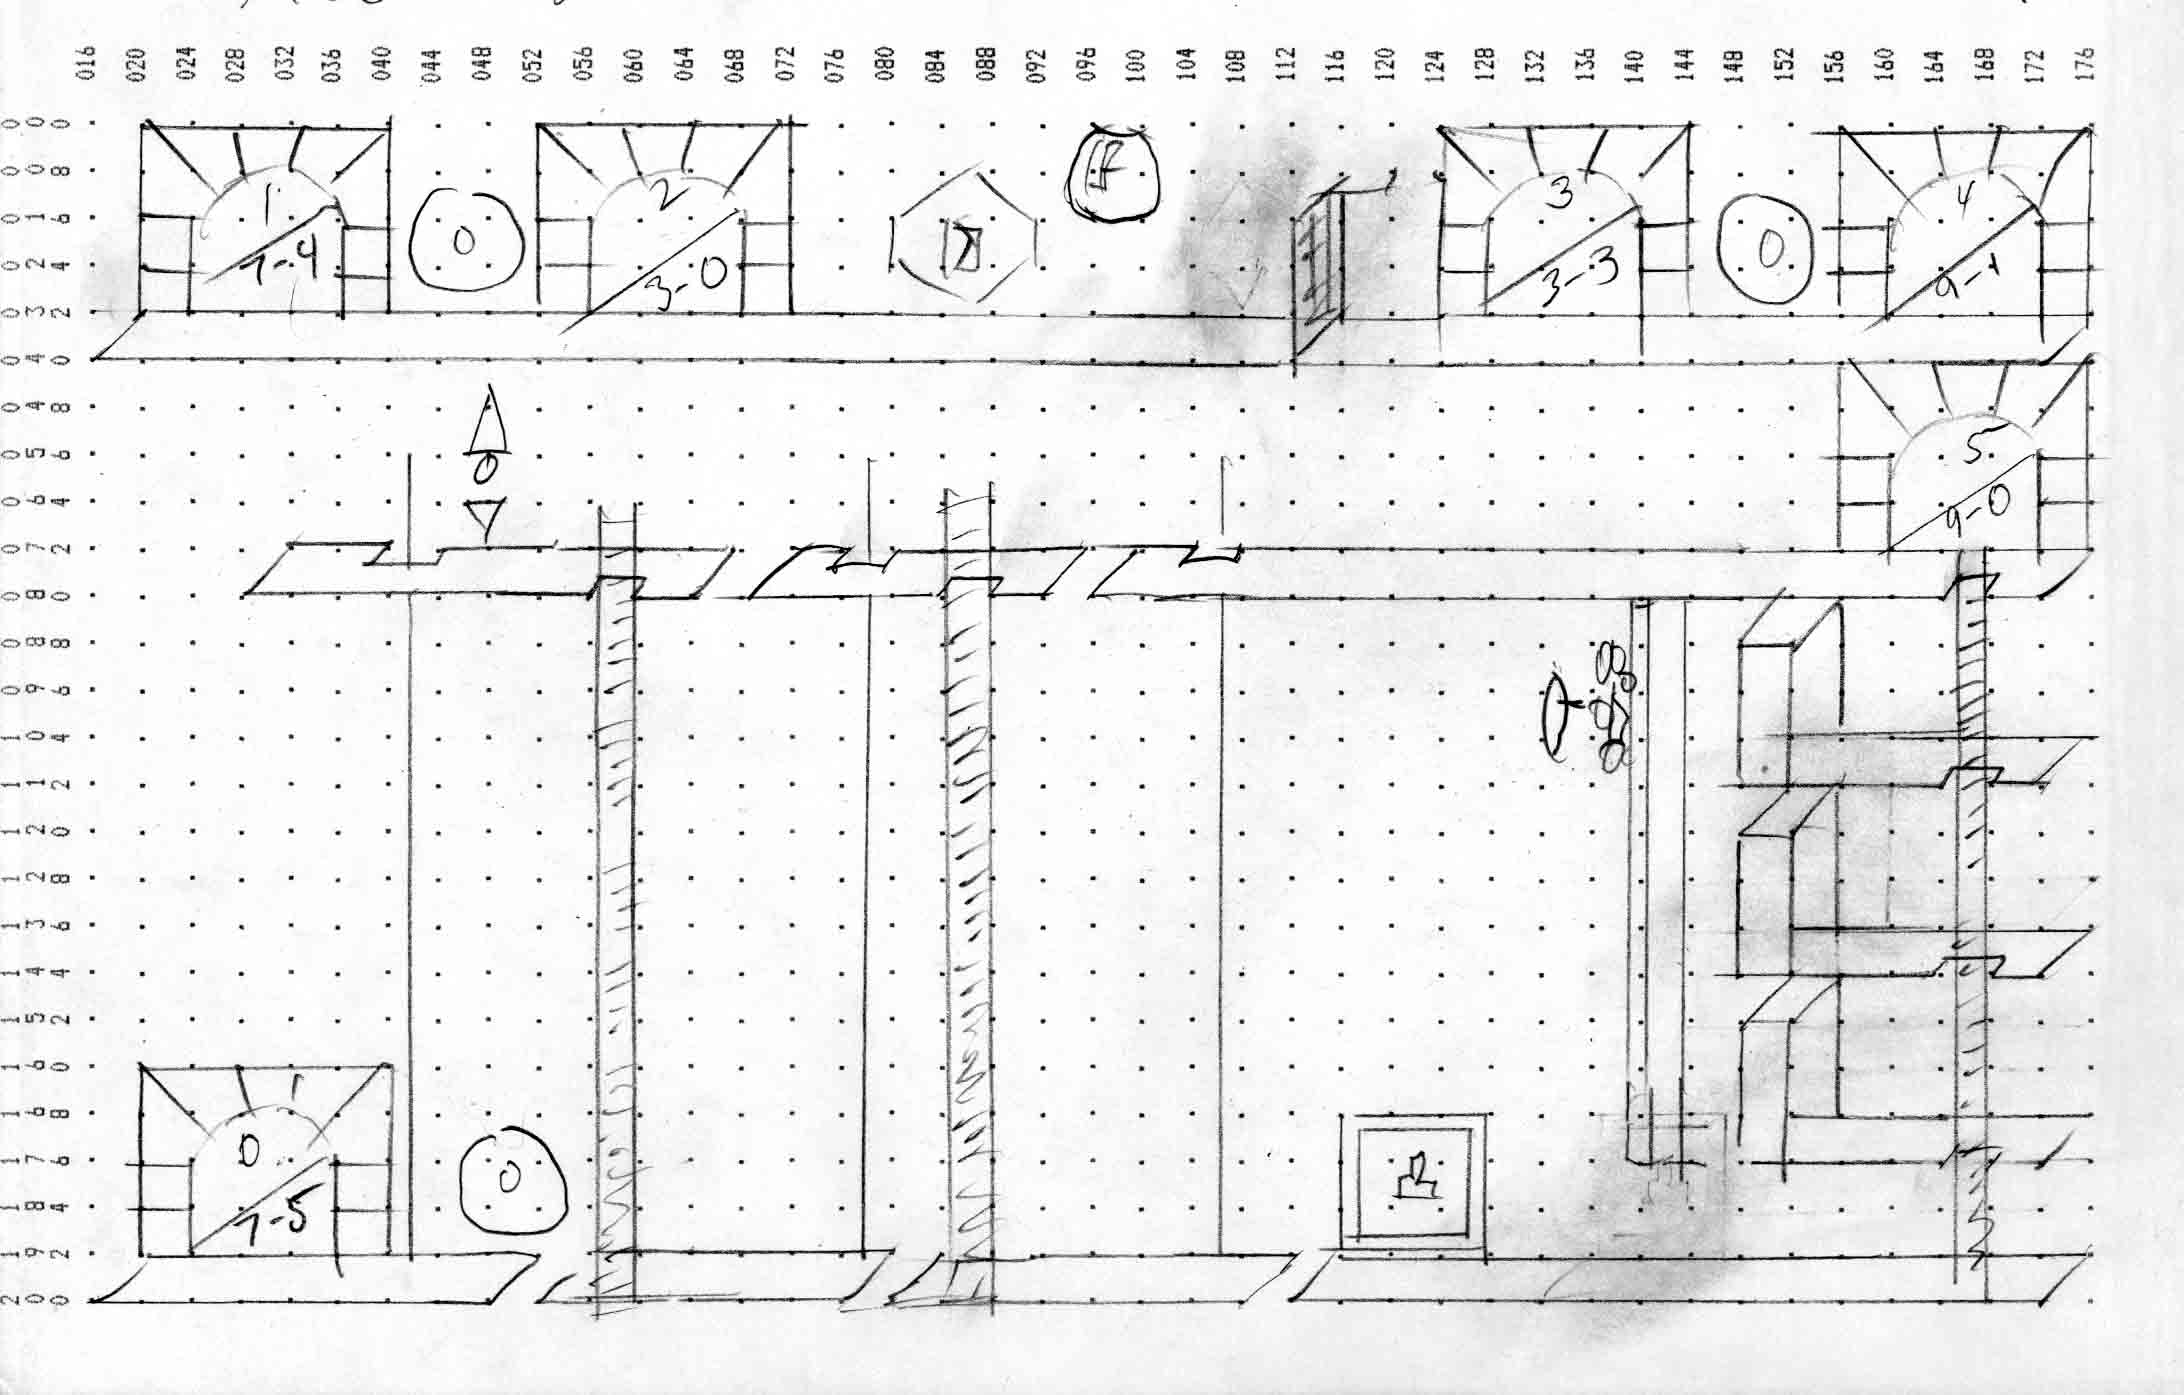 016 020 024 028 032 036 040 044 048 052 056 060 064 068 072 076 080 084 088 092 096 100 104 108 112 116 120 124 128 132 136 140 144 148 152 156 160 164 168 172 176
000
008
1 2 3 4
016
0 0
024
1-4 3-0 3-3 9-1
032
040
048
056
5
0
064
9-0
072
080
088
096
104
112
120
128
136
144
152
160
168
0
176
0
184
1-5
192
200